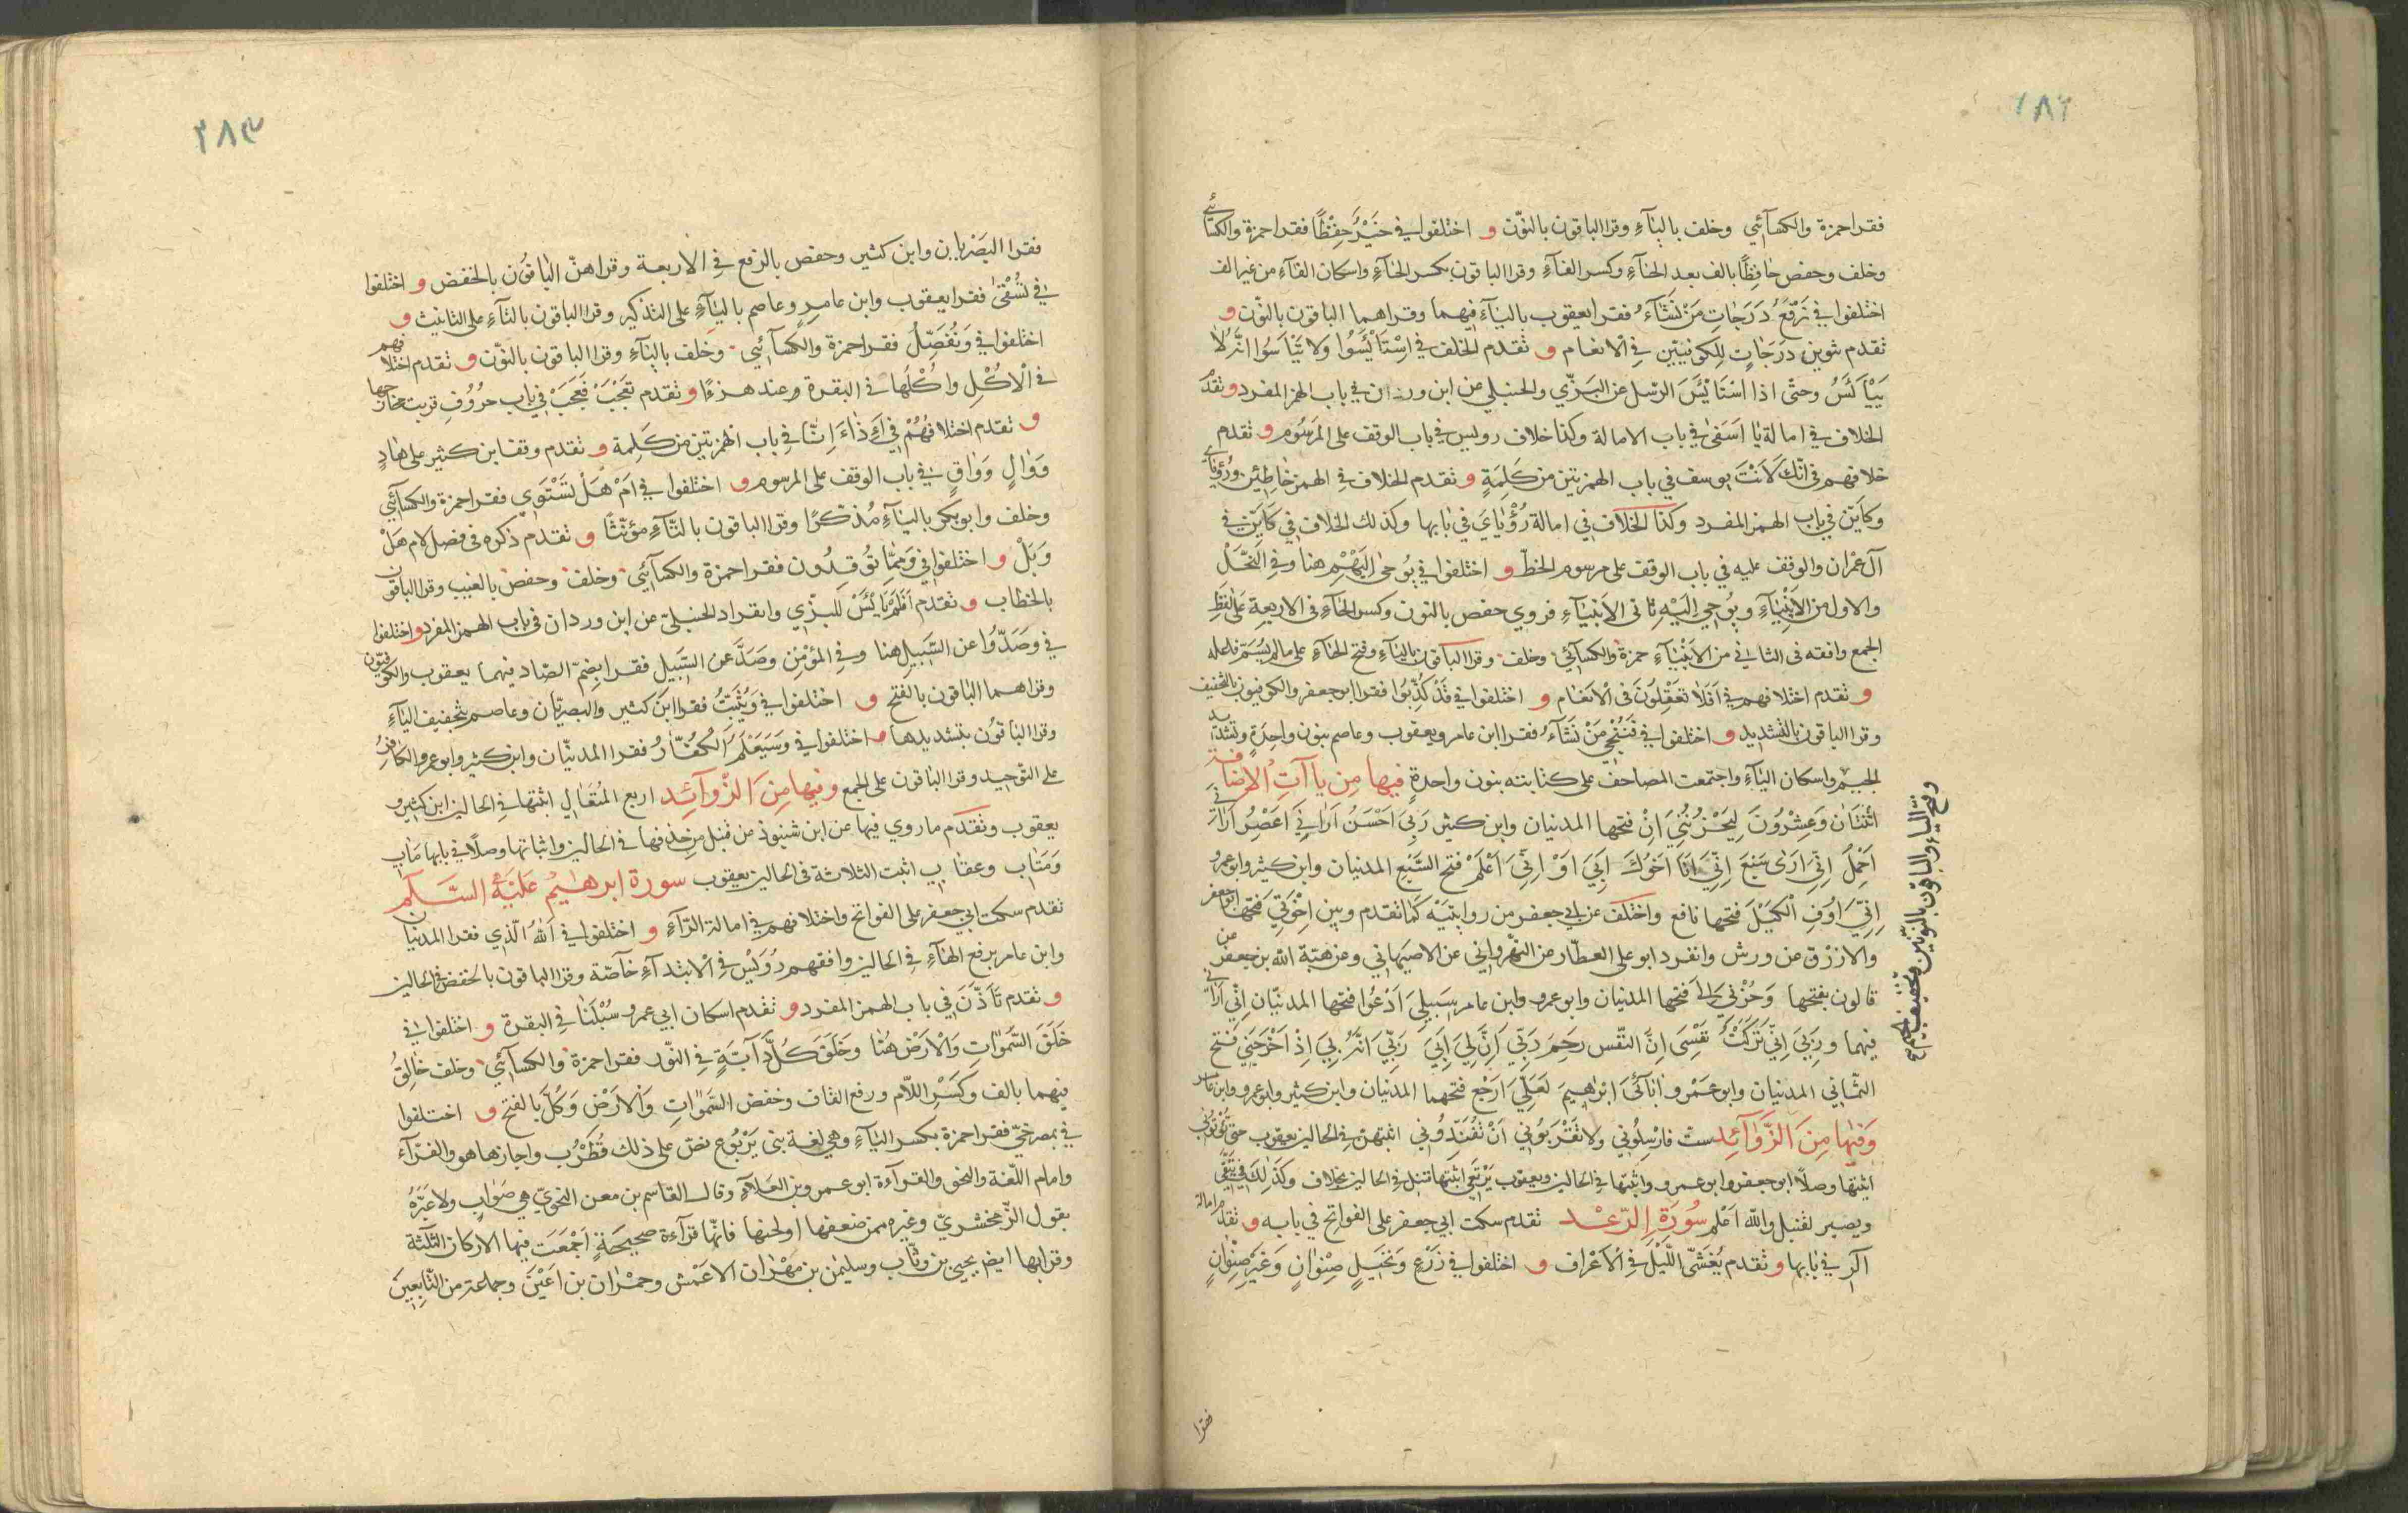 ١٨٢
فقرا حمزة والكسآئي وخلف باليآء وقرا الباقون بالنّون و اختلفوا في خَيْرٌ حِفْظًا فقرا حمزة والكسآئي
وخلف وحفص حَافِظًا بالف بعد الحآء وكسر الفآء وقرا الباقون بكسر الحآء واسكان الفآء من غير الف
اختلفوا في نَرْفَعُ دَرَجَاتٍ مَنْ نَشَآءُ فقرا يعقوب باليآء فيهما وقراهما الباقون بالنّون و
تقدم تنوين دَرَجَاتٍ للكوفيّين في الانعام و تقدم الخلف في اسْتَايْئَسُوا ولا تَيْاَسُوا انّه لا
يَيْاَسُ وحتّى اذا اسْتَايْئَسَ الرسل عن البَزّي والحنبلي عن ابن وردان في باب الهمز المفرد و تقدّم
الخلاف في امالة يا اَسَفىٰ في باب الامالة وكذا خلاف رويس في باب الوقف على المَرسُوم و تقدم
خلافهم في انّك لَاَنْتَ يوسف في باب الهمزتين من كَلِمَةٍ و تقدم الخلاف في الهمز خاطئين ورُؤياي
وكايّن في باب الهمز المفرد وكذا الخلاف في امالة رُؤْيايَ في بابها وكذلك الخلاف في كَايّن في
آل عمران والوقف عليه في باب الوقف على مرسوم الخطّ و اختلفوا في يُوحىٰ اِلَيْهِمْ هنا وفي النَّحْل
والاول من الاَنْبِيَآءِ ويُوحي اِلَيْهِ ثانى الاَنبيَآءِ فروي حفص بالنون وكسر الحآء فى الاربعة عَلىٰ لفظِ
الجمع وافقه فى الثاني من الاَنْبيَآءِ حمزة والكسآئي وخلف وقرا الباقون باليآء وفتح الحآء على ما لم يُسَمّ فاعله
و تقدم اختلافهم في اَفَلَا تَعْقِلُونَ فى الانعام و اختلفوا في قَدْ كُذِبُوا فقرا ابو جعفر والكوفيون بالتخفيف
وقرا الباقون بالتشديد و اختلفوا في فَنُنْجِي مَنْ نَشَآءُ فقرا ابن عامر ويعقوب وعاصم بنون واحِدَةٍ وتشديد
الجيم وفتح اليآء والباقون بالنّونين وتخفيف الجيم
الجيم واسكان اليآء واجتمعت المصاحف على كتابته بنون واحدةٍ فيها مِن يا آتِ الاِضافة
اثْنَتَانِ وَعِشْرُونَ لِيَحْزُنُنِي اَنْ فتحها المدنيان وابن كثير رَبي اَحْسَنُ اَرَانِي اَعْصِرُ اَرَاني
اَحْمِلُ اِنِّي اَرَى سَبْعَ اِنِّيَ اَنَا اَخُوكَ اَبِي اَوْ اِنِّي اَعْلَمُ فتح السَّبع المدنيان وابن كثير وابو عمرو
اِنِّيَ اُوفِ الْكَيْلَ فتحها نافع واختلف عن ابي جعفر من روايتيه كما تقدم وبين اِخْوَتِيَ فتحها ابو جعفر
والازرق عن ورش وانفرد ابو على العطّار عن النهرواني عن الاصبهاني وعن هبة الله بن جعفر عن
قالون بفتحها وَحُزْنِي اِلَى فتحها المدنيان وابو عمرو وابن عامر سَبِيلِيَ اَدْعُوا فتحها المدنيّان اِنِّي اَرَاني
فيهما ورَبيَ اِنّي تَرَكْتُ نَفْسِي اِنَّ النّفْس رَحِمَ رَبّي اِنَّ لِي اَبِي رَبِّي اِنَّهُ بِي اِذْ اَخْرَجَني فتح
الثّماني المدنيان وابو عَمْرو اٰبَآئِيَ اِبْراهِيمَ لَعَلِّيَ اَرْجِعُ فتحهما المدنيان وابن كثير وابو عمرو وابن عامر
وَفيهَا مِنَ الزَّوَآئِدِ ستّ فَارْسِلُوني ولا تَقْرَبُوني اَنْ تُفَنِّدُوني اثبتهنّ في الحالين يعقوب حتّى تُؤْتُوني
اثبتها وصلًا ابو جعفر وابو عمرو واثبتها في الحالين ويعقوب يَرْتَعِي اثبتها قنبل في الحالين بخلاف وكَذٰلِكَ في يَتَّقِي
ويصبر لقنبل والله اعلم سُورَة الرّعْد تقدم سكت ابي جعفر على الفواتح في بابه و تقدّم امالة
الٓر في بابها و تقدم يُغْشي اللَّيْلَ في الاَعْرافِ و اختلفوا في زَرْعٍ وَنَخيلٍ صِنْوَانٍ وَغَيْرِ صِنْوَانٍ
فقرا
٢٨٣
فقرا البَصْريان وابن كثير وحفص بالرفع في الاربعة وقراهنّ الباقُون بالخفض و اختلفوا
في تُسْقىٰ فقرا يعقوب وابن عامر وعاصم باليآء على التذكير وقرا الباقون بالتآء على التانيث و
اختلفوا في وَنُفَضِّلُ فقرا حمزة والكسآئي وخلف باليآء وقرا الباقون بالنّون و تقدم اختلافهم
في الْاُكُلِ واُكُلُهَا في البقرة وعند هزءًا و تقدم تَعْجَبْ فَعَجَبٌ في باب حرُوف قربت مخارجها
و تقدم اختلافهُمْ في ءَاِذَا ءَاِنَّا في باب الهمزتين من كَلِمة و تقدم وقف ابن كثير على هَادٍ
وَوَالٍ وَوَاقٍ في باب الوقف على المرسوم و اختلفوا في اَمْ هَلْ تَسْتَوي فقرا حمزة والكسآئي
وخلف وابو بكر باليآء مُذكرًا وقرا الباقون بالتآء مؤنّثًا و تقدم ذكره فى فصل لام هَلْ
وَبَلْ و اختلفوا في وَمِمَّا تُوقِدُون فقرا حمزة والكسآئي وخلف وحفص بالغيب وقرا الباقون
بالخطاب و تقدم اَفَلَمْ يَايْئَسْ للبزّي وانفراد الحنبليّ عن ابن وردان فى باب الهمز المفرد و اختلفوا
في وصَدُّوا عن السّبيلِ هنا وفي المؤمن وصَدَّ عن السّبيل فقرا بضمّ الصّاد فيهما يعقوب والكوفيّون
وقراهما الباقون بالفتح و اختلفوا في وَيُثْبِتُ فقرا ابن كثير والبصريّان وعاصم بتخفيف البآء
وقرا الباقُون بتشديدها و اختلفوا في وَسَيَعْلَمُ الْكُفّارُ فقرا المدنيّان وابن كثير وابو عمرو الكافِرُ
على التوحيد وقرا الباقون على الجمع وفيها مِنَ الزّوَآئِدِ اربع المُتَعَالِ اثبتها في الحالين ابن كثير و
يعقوب وتقدم ما روي فيها عن ابن شنبوذ عن قنبل من حذفها في الحالين واثباتها وصلًا في بابها مَاٰب
وَمَتَاب وعقَاب اثبت الثلاثة فى الحالين يعقوب سورة ابرهيم عَلَيْهِ السَّلَام
تقدم سكت ابي جعفر على الفواتح واختلافهم في امالة الرّآء و اختلفوا في اَللهُ الَّذِي فقرا المدنيان
وابن عامر برفع الهآء في الحالين وافقهم رُوَيس في الابتدآء خآصّة وقرا الباقون بالخفض فى الحالين
و تقدم تَاَذّنَ في باب الهمز المفرد و تقدم اسكان ابي عمرو سُبْلَنَا في البقرة و اختلفوا في
خَلَقَ السَّمٰوَاتِ وَالْاَرْضَ هُنا وخَلَقَ كُلَّ دَآبّةٍ في النّور فقرا حمزة والكسآئي وخلف خَالِقُ
فيهما بالف وكَسْرِ اللّام ورفع القاف وخفض السّمٰوَاتِ وَالْارْضِ وَكُلَّ بالفتح و اختلفوا
في بمصرخيّ فقرا حمزة بكسر اليآء وهي لغة بني يَرْبُوع نصّ على ذلك قُطْرُب واجازها هو والفرّآء
وامام اللّغة والنحو والقرآءة ابو عمرو بن العَلآء وقال القاسم بن معن النحويّ هي صَوَاب ولا عِبْرَة
بقول الزّمخشريّ وغيره ممن ضعفها او لحنها فانّها قرآءة صحيحَةٍ اجْمَعَت فيها الاركان الثلثة
وقرا بها ايضا يحيى بن وثّاب وسليمن بن مِهْرَان الاعمش وحمْرَان بن اَعْيَن وجماعة من التّابعِينَ